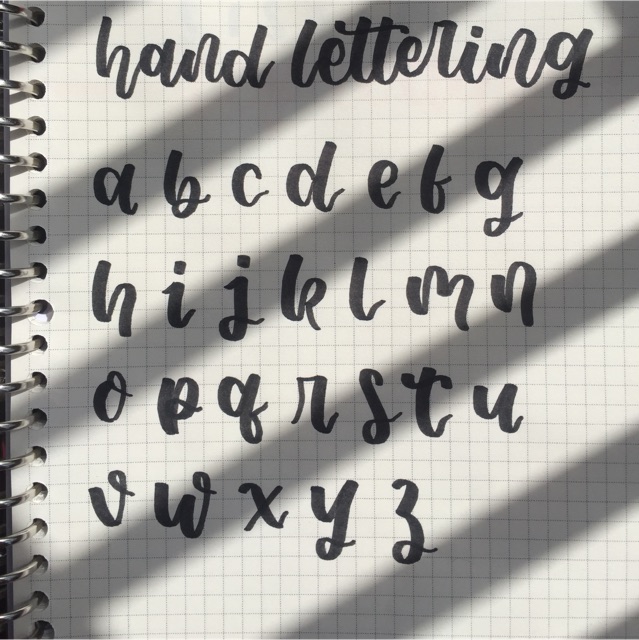 hand lettering
a b c d e f g
h i j k l m n
o p q r s t u
v w x y z